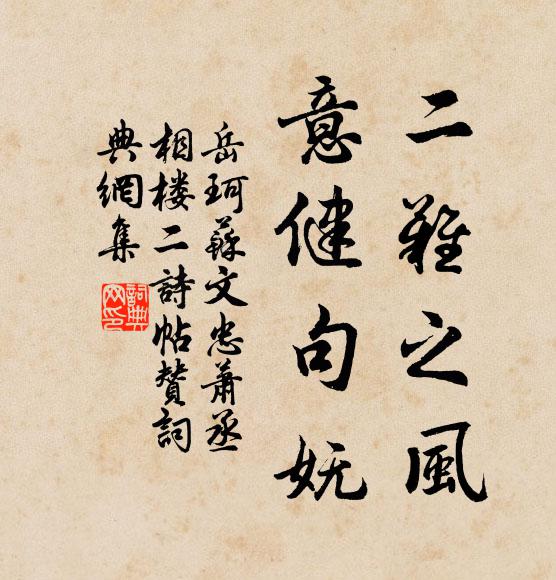 二難之風
意健句妩
岳珂蘇文忠蕭丞
相楼二詩帖贊詞
典網集
詞典
网印